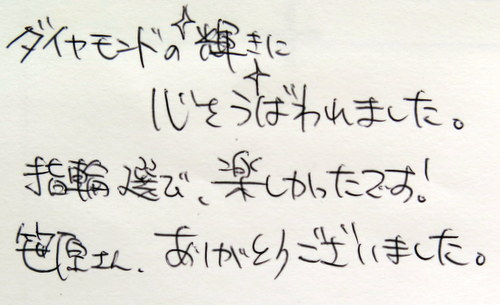 ダイヤモンドの輝きに
心をうばわれました。
指輪選び、楽しかったです!
笹原さん、ありがとうございました。